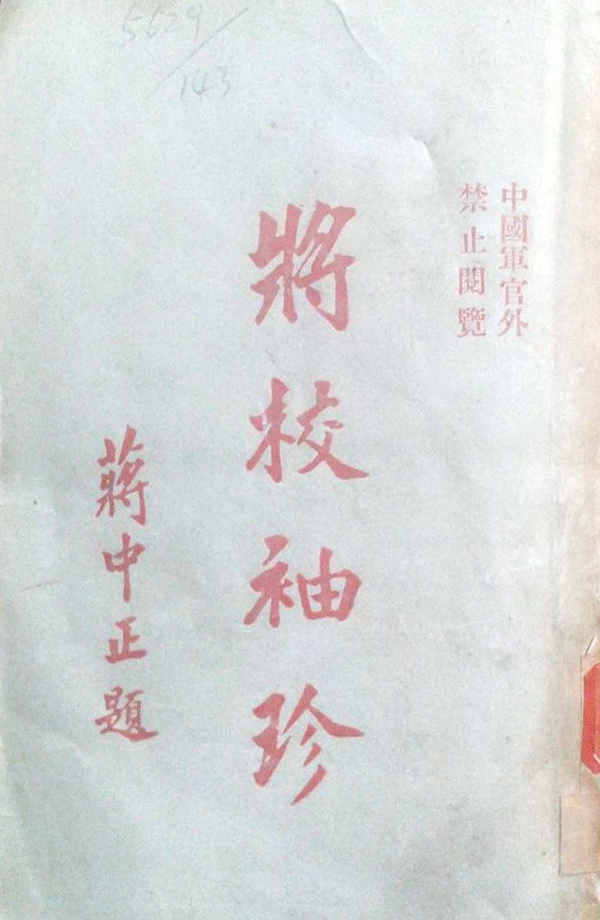 5629/143
中國軍官外
禁止閱覽
將校袖珍
蔣中正題